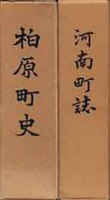 柏原町史
河南町誌